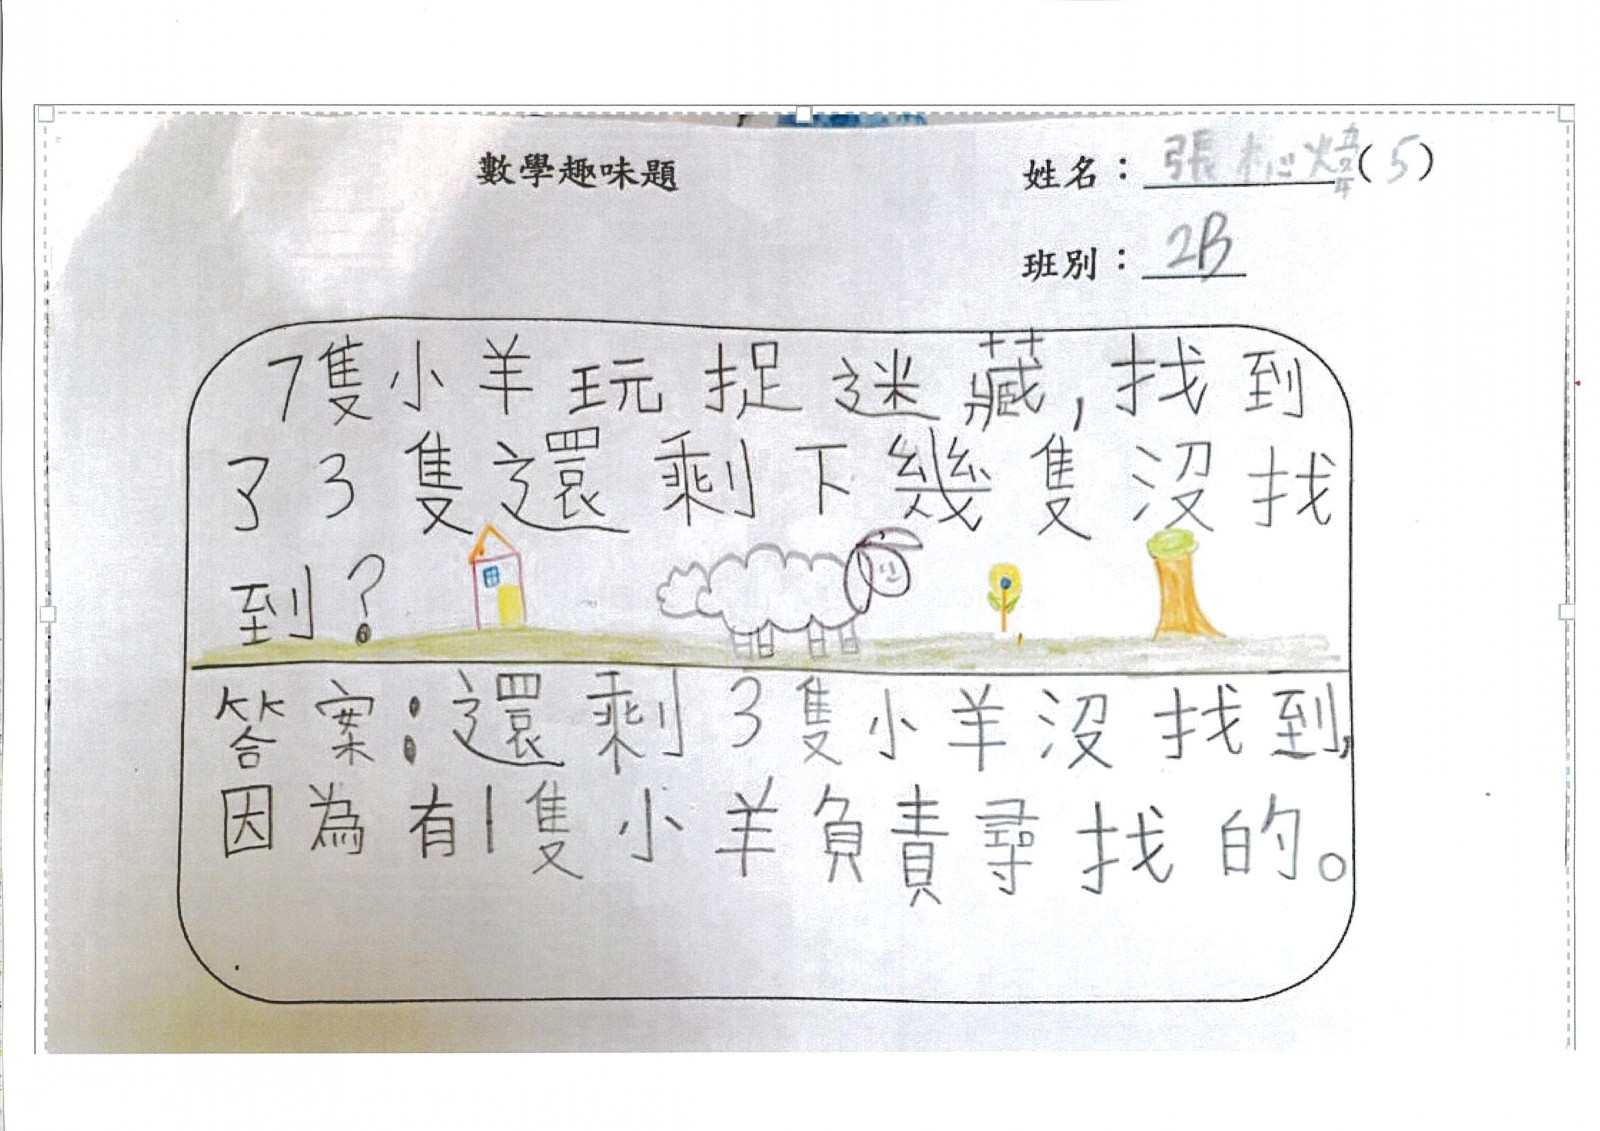 數學趣味題
姓名：張(5)
班別：2B
7隻小羊玩捉迷藏,找到
了3隻還剩下幾隻沒找
到？
答案：還剩3隻小羊沒找到,
因為有1隻小羊負責尋找的。